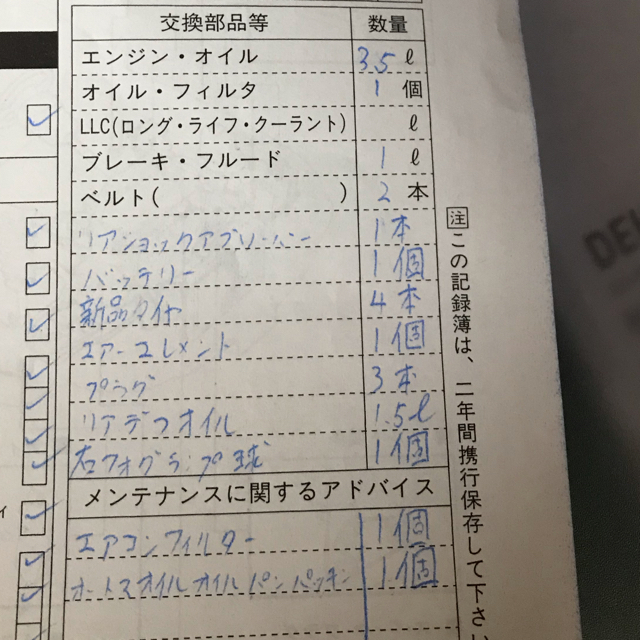 交換部品等 数量
エンジン・オイル 3.5 ℓ
オイル・フィルタ 1 個
LLC(ロング・ライフ・クーラント) ℓ
ブレーキ・フルード 1 ℓ
ベルト( ) 2 本
リアショックアブソーバー 1本
バッテリー 1個
新品タイヤ 4本
エアーエレメント 1個
プラグ 3本
リアデフオイル 1.5ℓ
右フォグランプ球 1個
メンテナンスに関するアドバイス
エアコンフィルター 1個
オートマオイルオイルパンパッキン 1個
注 この記録簿は、二年間携行保存して下さい
DE